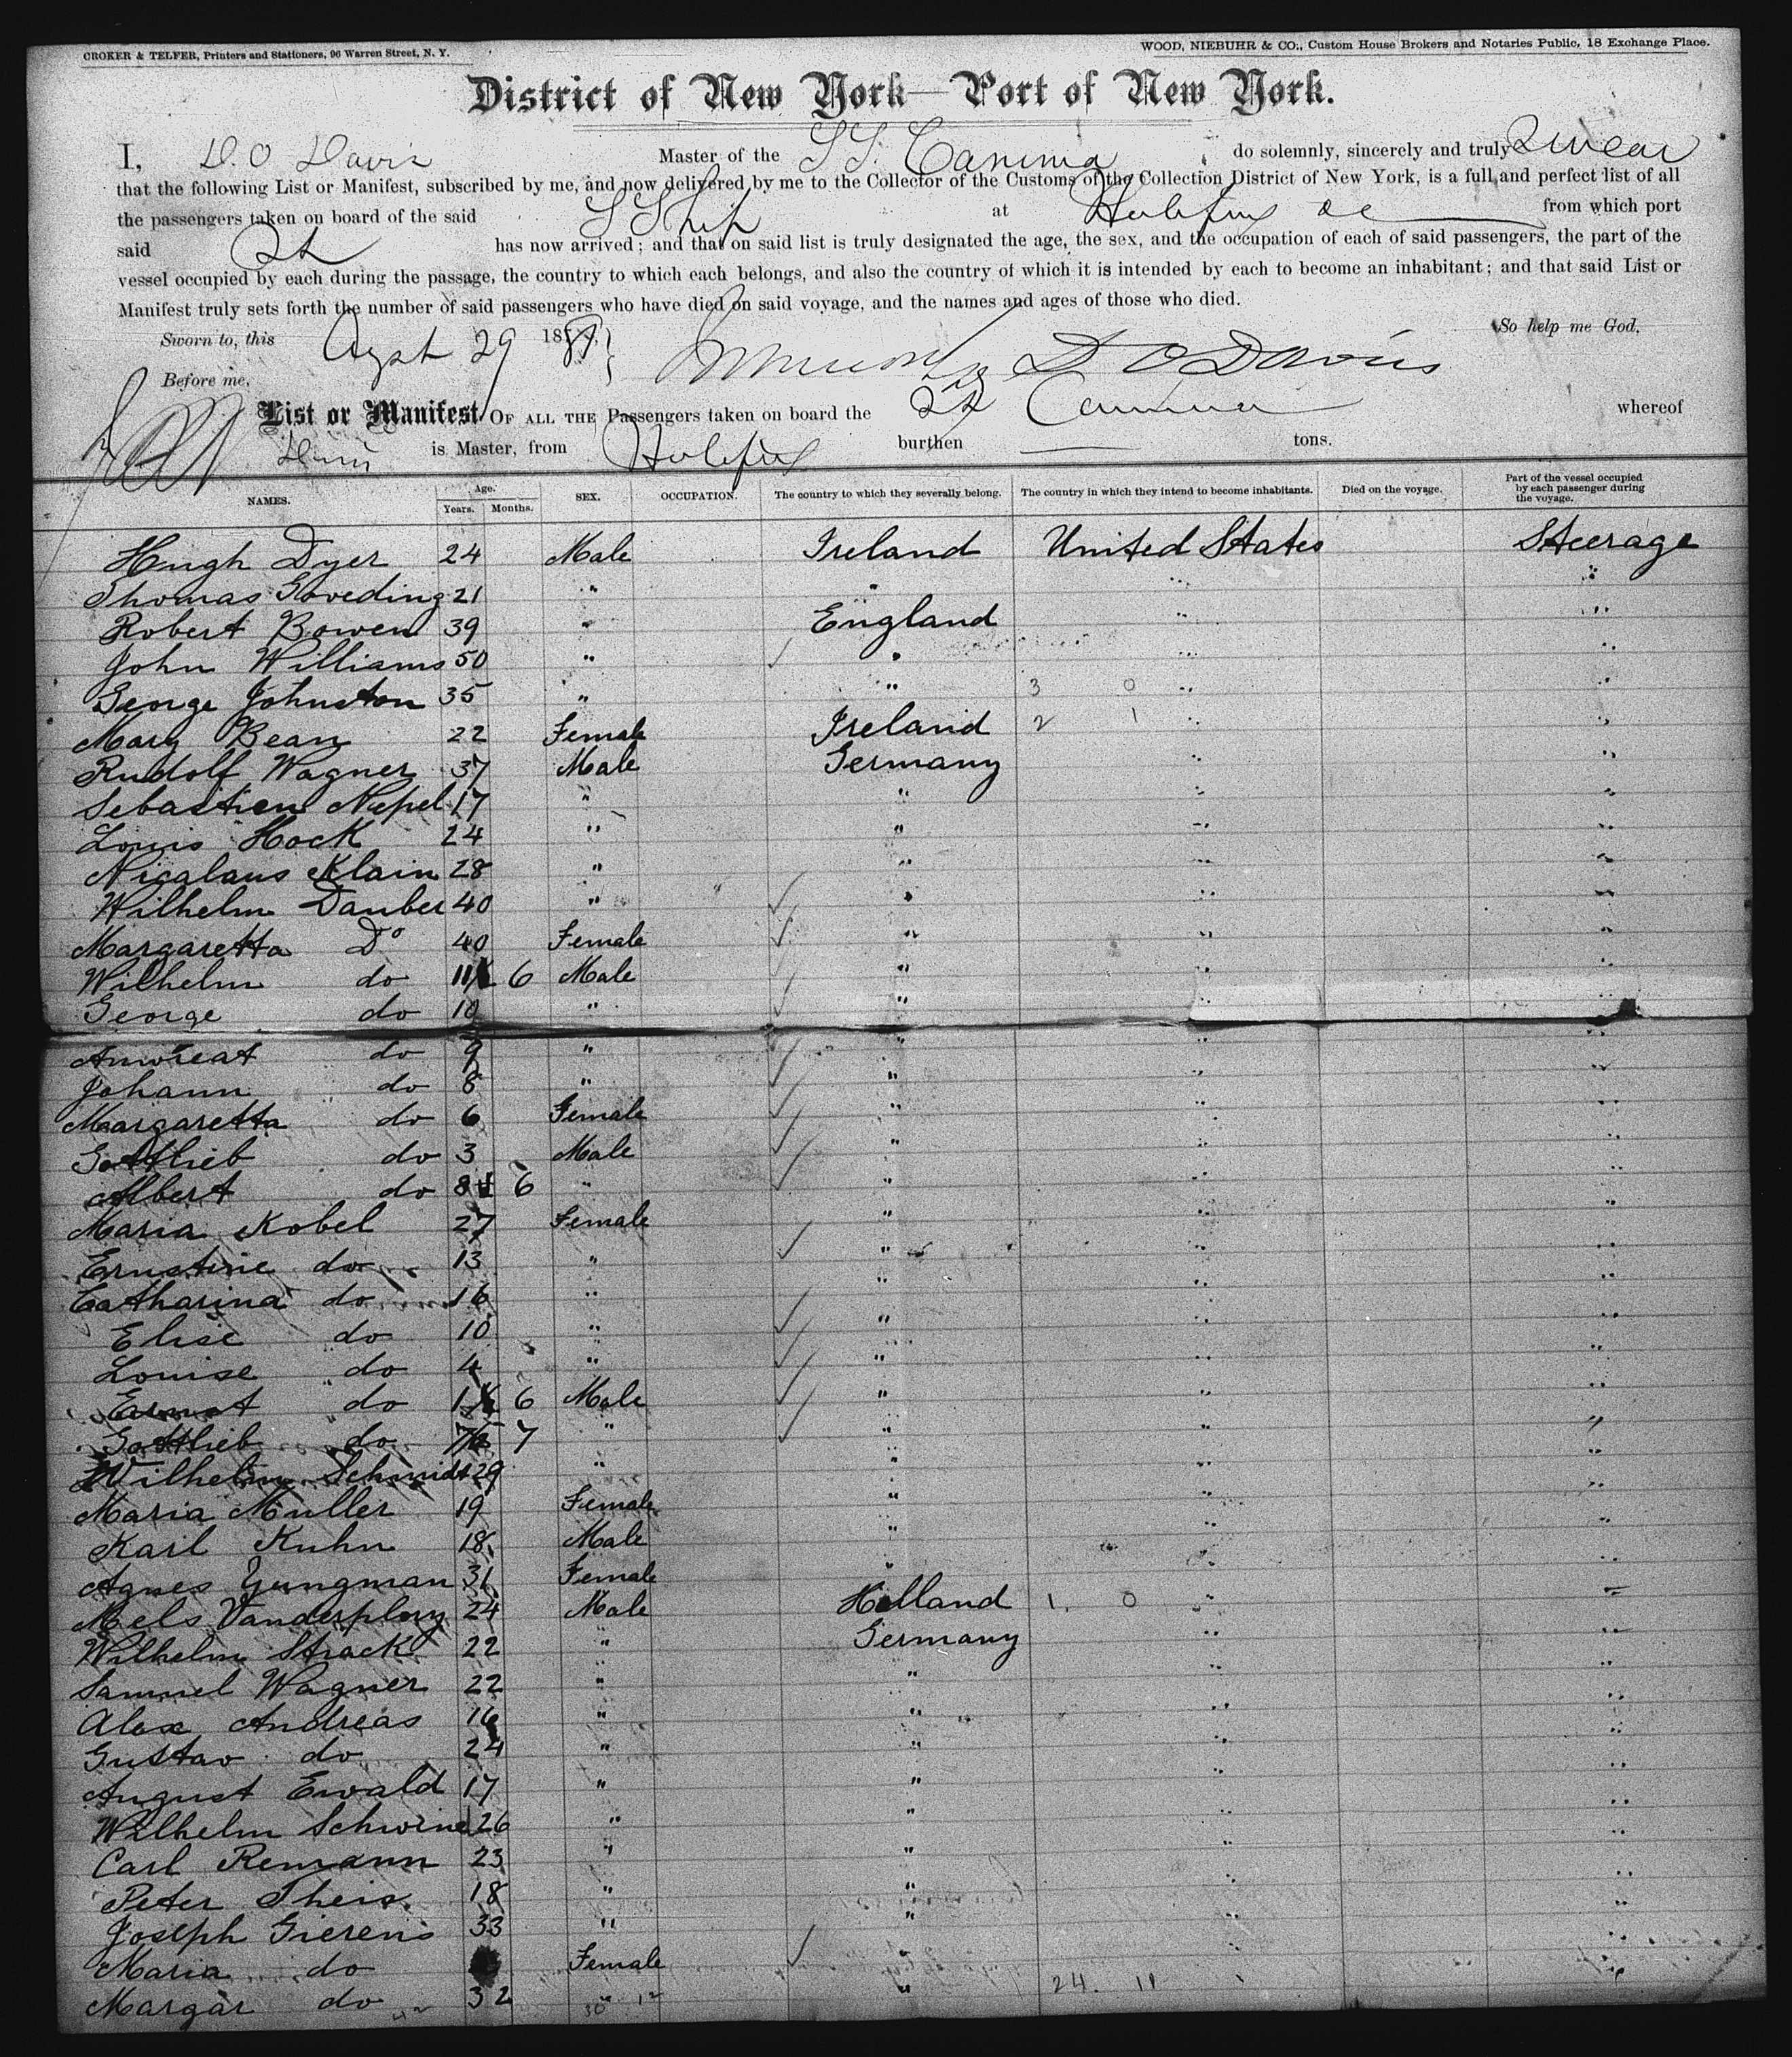 CROKER & TELFER, Printers and Stationers, 96 Warren Street, N. Y. WOOD, NIEBUHR & CO., Custom House Brokers and Notaries Public, 18 Exchange Place.
District of New York—Port of New York.
I, D. O Davis Master of the SS. Canima do solemnly, sincerely and truly Swear
that the following List or Manifest, subscribed by me, and now delivered by me to the Collector of the Customs of the Collection District of New York, is a full and perfect list of all
the passengers taken on board of the said SShip at Halifax from which port
said has now arrived; and that on said list is truly designated the age, the sex, and the occupation of each of said passengers, the part of the
vessel occupied by each during the passage, the country to which each belongs, and also the country of which it is intended by each to become an inhabitant; and that said List or
Manifest truly sets forth the number of said passengers who have died on said voyage, and the names and ages of those who died.
So help me God.
Sworn to, this Augst 29 188
Before me, D O Davis
List or Manifest OF ALL THE Passengers taken on board the SS Canima whereof
Davis is Master, from Halifax burthen tons.
NAMES. Age. Years. Months. SEX. OCCUPATION. The country to which they severally belong. The country in which they intend to become inhabitants. Died on the voyage. Part of the vessel occupied by each passenger during the voyage.
Hugh Dyer 24 Male Ireland United States Steerage
Thomas Goveding 21 " " " "
Robert Bowen 39 " England " "
John Williams 50 " " " "
George Johnston 35 " " 3 0 " "
Mary Bean 22 Female Ireland 2 1 " "
Rudolf Wagner 37 Male Germany " "
Sebastien 17 " " " "
Louis Hock 24 " " " "
Nicalaus Klain 28 " " " "
Wilhelm Dauber 40 " " " "
Margaretta Do 40 Female " " "
Wilhelm do 11 6 Male " " "
George do 10 " " " "
do 9 " " " "
Johann do 8 " " " "
Margaretta do 6 Female " " "
Gottlieb do 3 Male " " "
Albert do 6 " " " "
Maria Kobel 27 Female " " "
Ernstine do 13 " " " "
Catharina do 16 " " " "
Elise do 10 " " " "
Louise do 4 " " " "
Ernst do 1 6 Male " " "
Gottlieb do 7 " " " "
Wilhelm Schmidt 29 " " " "
Maria Muller 19 Female " " "
Karl Kuhn 18 Male " " "
Agnes Yungman 31 Female " " "
24 Male Holland 1. 0 " "
Wilhelm Strack 22 " Germany " "
Samuel Wagner 22 " " " "
Alex Andreas 16 " " " "
Gustav do 24 " " " "
August Ewald 17 " " " "
Wilhelm 26 " " " "
Carl Remann 23 " " " "
Peter Theis 18 " " " "
Joseph Gierens 33 " " " "
Maria do Female " " "
Margar do 32 " " 24. 11 " "
30 12